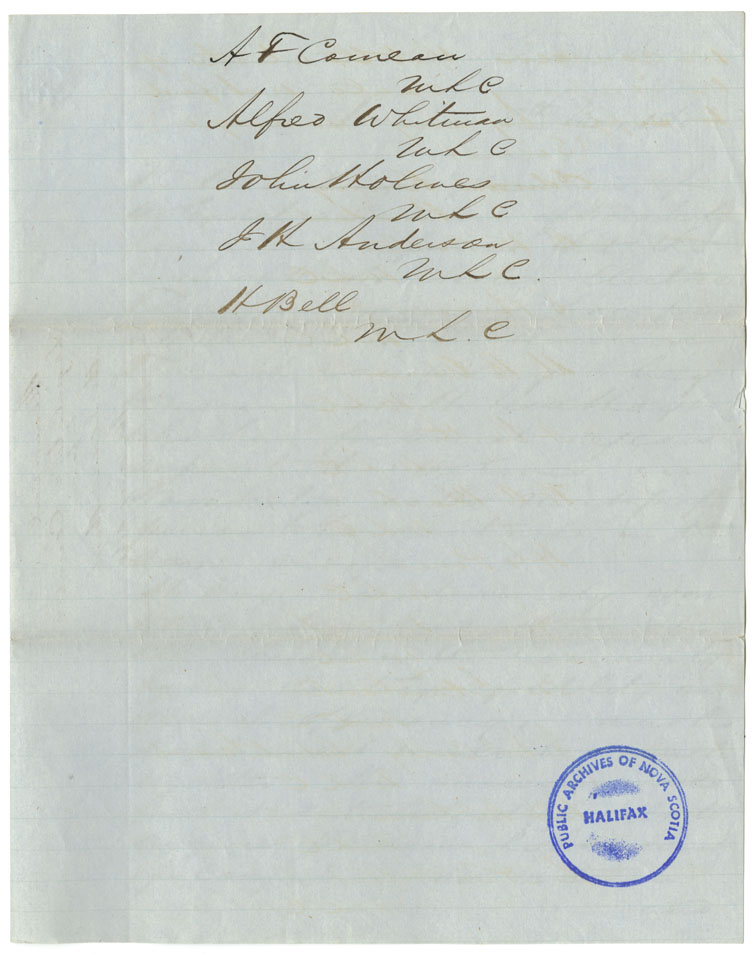 A F Comeau
M L C
Alfred Whitman
M L C
John Holmes
M L C
J H Anderson
M L C.
H Bell
M. L. C
PUBLIC ARCHIVES OF NOVA SCOTIA
HALIFAX